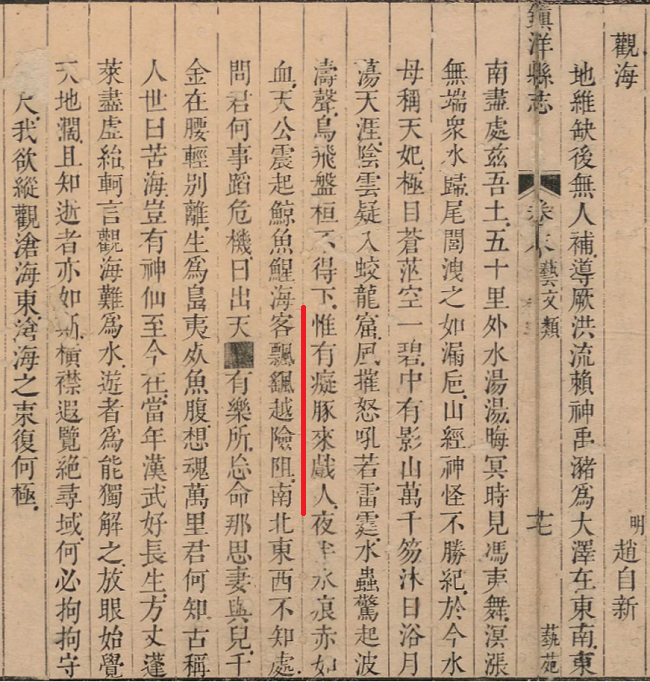 觀海
明 趙自新
地維缺後無人補、導厥洪流賴神禹、瀦為大澤在東南、東
鎮洋縣志 卷 藝文類 十七 藝苑
南盡處茲吾土、五十里外水湯湯、晦冥時見馮夷舞、溟漲
無端衆水歸、尾閭洩之如漏巵、山經神怪不勝紀、於今水
母稱天妃、極目蒼茫空一碧、中有影山萬千笏、沐日浴月
蕩天涯、陰雲疑入蛟龍窟、風摧怒吼若雷霆、水蟲驚起波
濤聲、鳥飛盤桓不得下、惟有癡豚來戲人、夜半水痕赤如
血、天公震起鯨魚鯹、海客飄颻越險阻、南北東西不知處、
問君何事蹈危機、日出天有樂所、忘命那思妻與兒、千
金在腰輕別離、生為島夷死魚腹、想魂萬里君何知、古稱
人世日苦海、豈有神仙至今在、當年漢武好長生、方丈蓬
萊盡虛紿、軻言觀海難為水、遊者為能獨解之、放眼始覺
天地濶、且知逝者亦如斯、橫襟遐覽絕尋域、何必拘拘守
尺、我欲縱觀滄海東、滄海之東復何極、